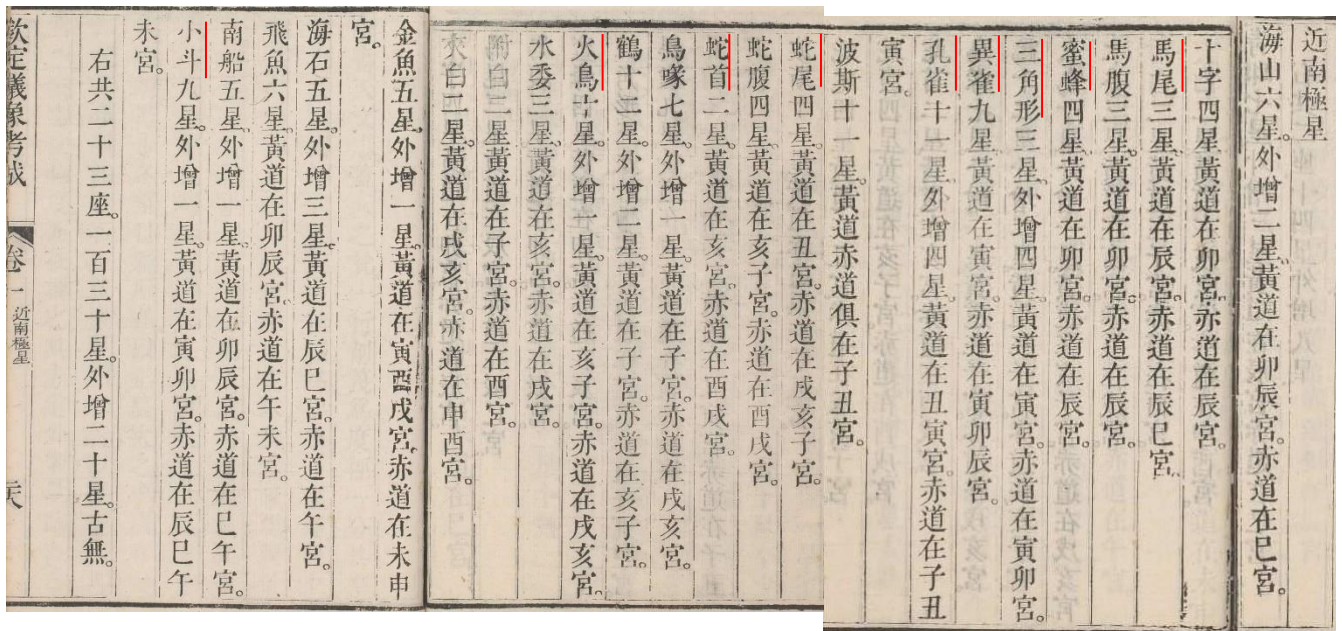 近南極星
海山六星。外增二星。黃道在卯辰宮。赤道在巳宮。
十字四星。黃道在卯宮。赤道在辰宮。
馬尾三星。黃道在辰宮。赤道在辰巳宮。
馬腹三星。黃道在卯宮。赤道在辰宮。
蜜蜂四星。黃道在卯宮。赤道在辰宮。
三角形三星。外增四星。黃道在寅宮。赤道在寅卯宮。
異雀九星。黃道在寅宮。赤道在寅卯辰宮。
孔雀十一星。外增四星。黃道在丑寅宮。赤道在子丑
寅宮。
波斯十一星。黃道赤道俱在子丑宮。
蛇尾四星。黃道在丑宮。赤道在戌亥子宮。
蛇腹四星。黃道在亥子宮。赤道在酉戌宮。
蛇首二星。黃道在亥宮。赤道在酉戌宮。
鳥喙七星。外增一星。黃道在子宮。赤道在戌亥宮。
鶴十二星。外增二星。黃道在子宮。赤道在亥子宮。
火鳥十星。外增一星。黃道在亥子宮。赤道在戌亥宮。
水委三星。黃道在亥宮。赤道在戌宮。
附白二星。黃道在子宮。赤道在酉宮。
夾白二星。黃道在戌亥宮。赤道在申酉宮。
金魚五星。外增一星。黃道在寅酉戌宮。赤道在未申
宮。
海石五星。外增三星。黃道在辰巳宮。赤道在午宮。
飛魚六星。黃道在卯辰宮。赤道在午未宮。
南船五星。外增一星。黃道在卯辰宮。赤道在巳午宮。
小斗九星。外增一星。黃道在寅卯宮。赤道在辰巳午
未宮。
右共二十三座。一百三十星。外增二十星。古無。
欽定儀象考成
卷一 近南極星